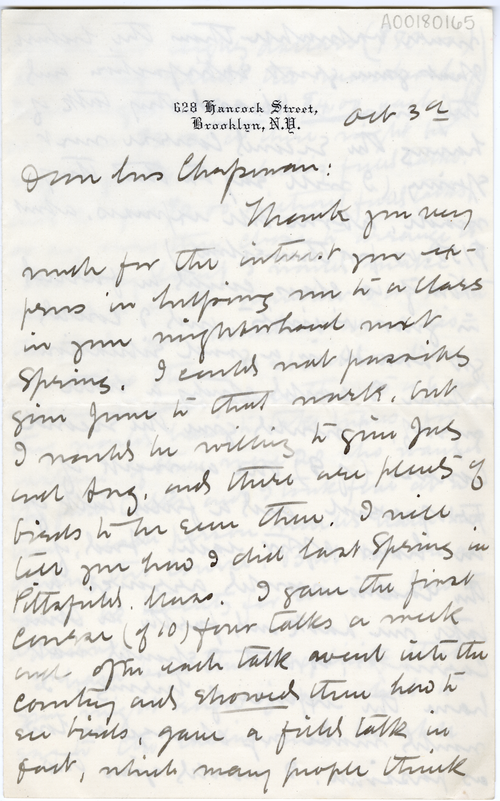 A00180165
628 Hancock Street,
Brooklyn, N.Y.
Oct 3d
Dear Mrs Chapman:
Thank you very
much for the interest you ex-
press in helping me to a class
in your neighborhood next
Spring. I could not possibly
give June to that work, but
I would be willing to give July
and Aug. and there are plenty of
birds to be seen then. I will
tell you how I did last Spring in
Pittsfield. Mass. I gave the first
course (of 10) four talks a week
and after each talk went into the
country and showed them how to
see birds, gave a field talk in
fact, which many people think